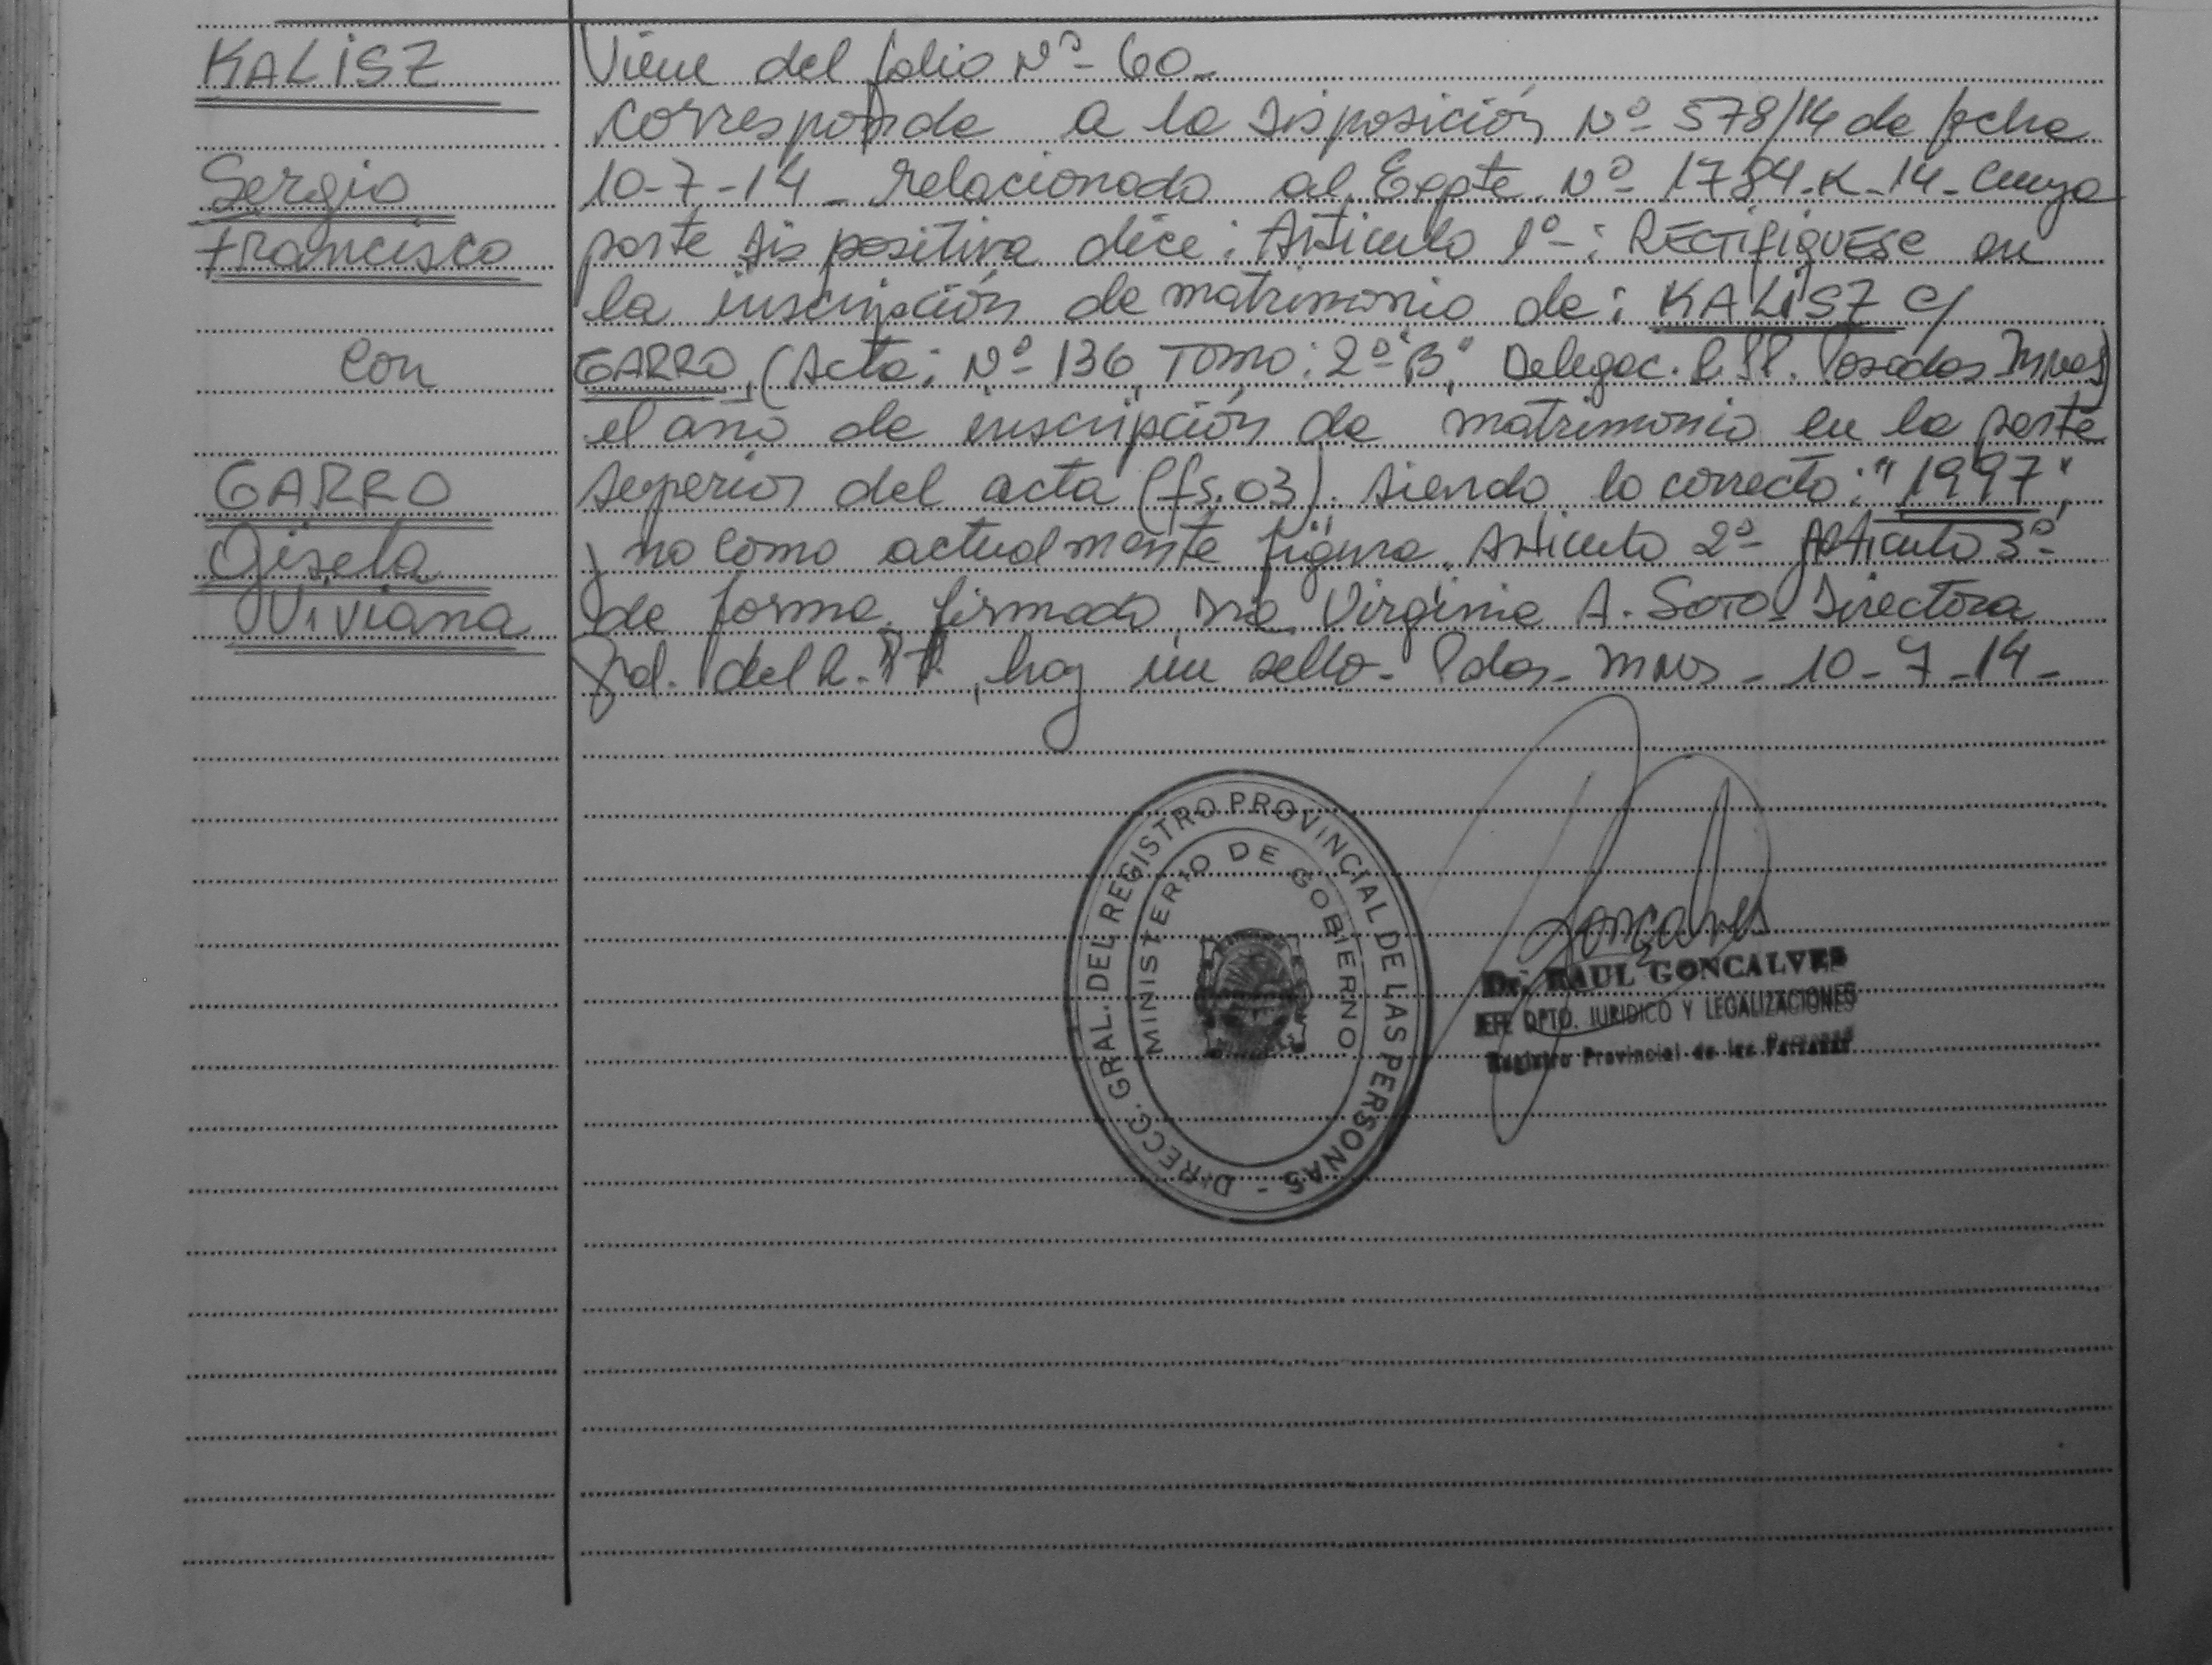 KALISZ
Sergio
Francisco
con
GARRO
Gisela
Viviana
Viene del folio Nº 60-
corresponde a la disposición Nº 578/14 de fecha
10-7-14 - relacionado al Expte Nº 1784-K-14- cuya
parte dispositiva dice: Artículo 1º-: RECTIFIQUESE en
la inscripción de matrimonio de: KALISZ c/
GARRO, (Acta: Nº 136, Tomo: 2º "B", Delegac. R.PP. Posadas Mnes)
el año de inscripción de matrimonio en la parte
superior del acta (fs.03). siendo lo correcto: "1997",
y no como actualmente figura. Artículo 2º y Artículo 3º-
de forma. firmado Dra Virginia A. Soto Directora
Gral. del R.PP., hay un sello- Pdas- Mnes - 10-7-14-
DIRECC. GRAL. DEL REGISTRO PROVINCIAL DE LAS PERSONAS -
MINISTERIO DE GOBIERNO
Goncalves
Dr. RAUL GONCALVES
JEFE DPTO. JURIDICO Y LEGALIZACIONES
Registro Provincial de las Personas